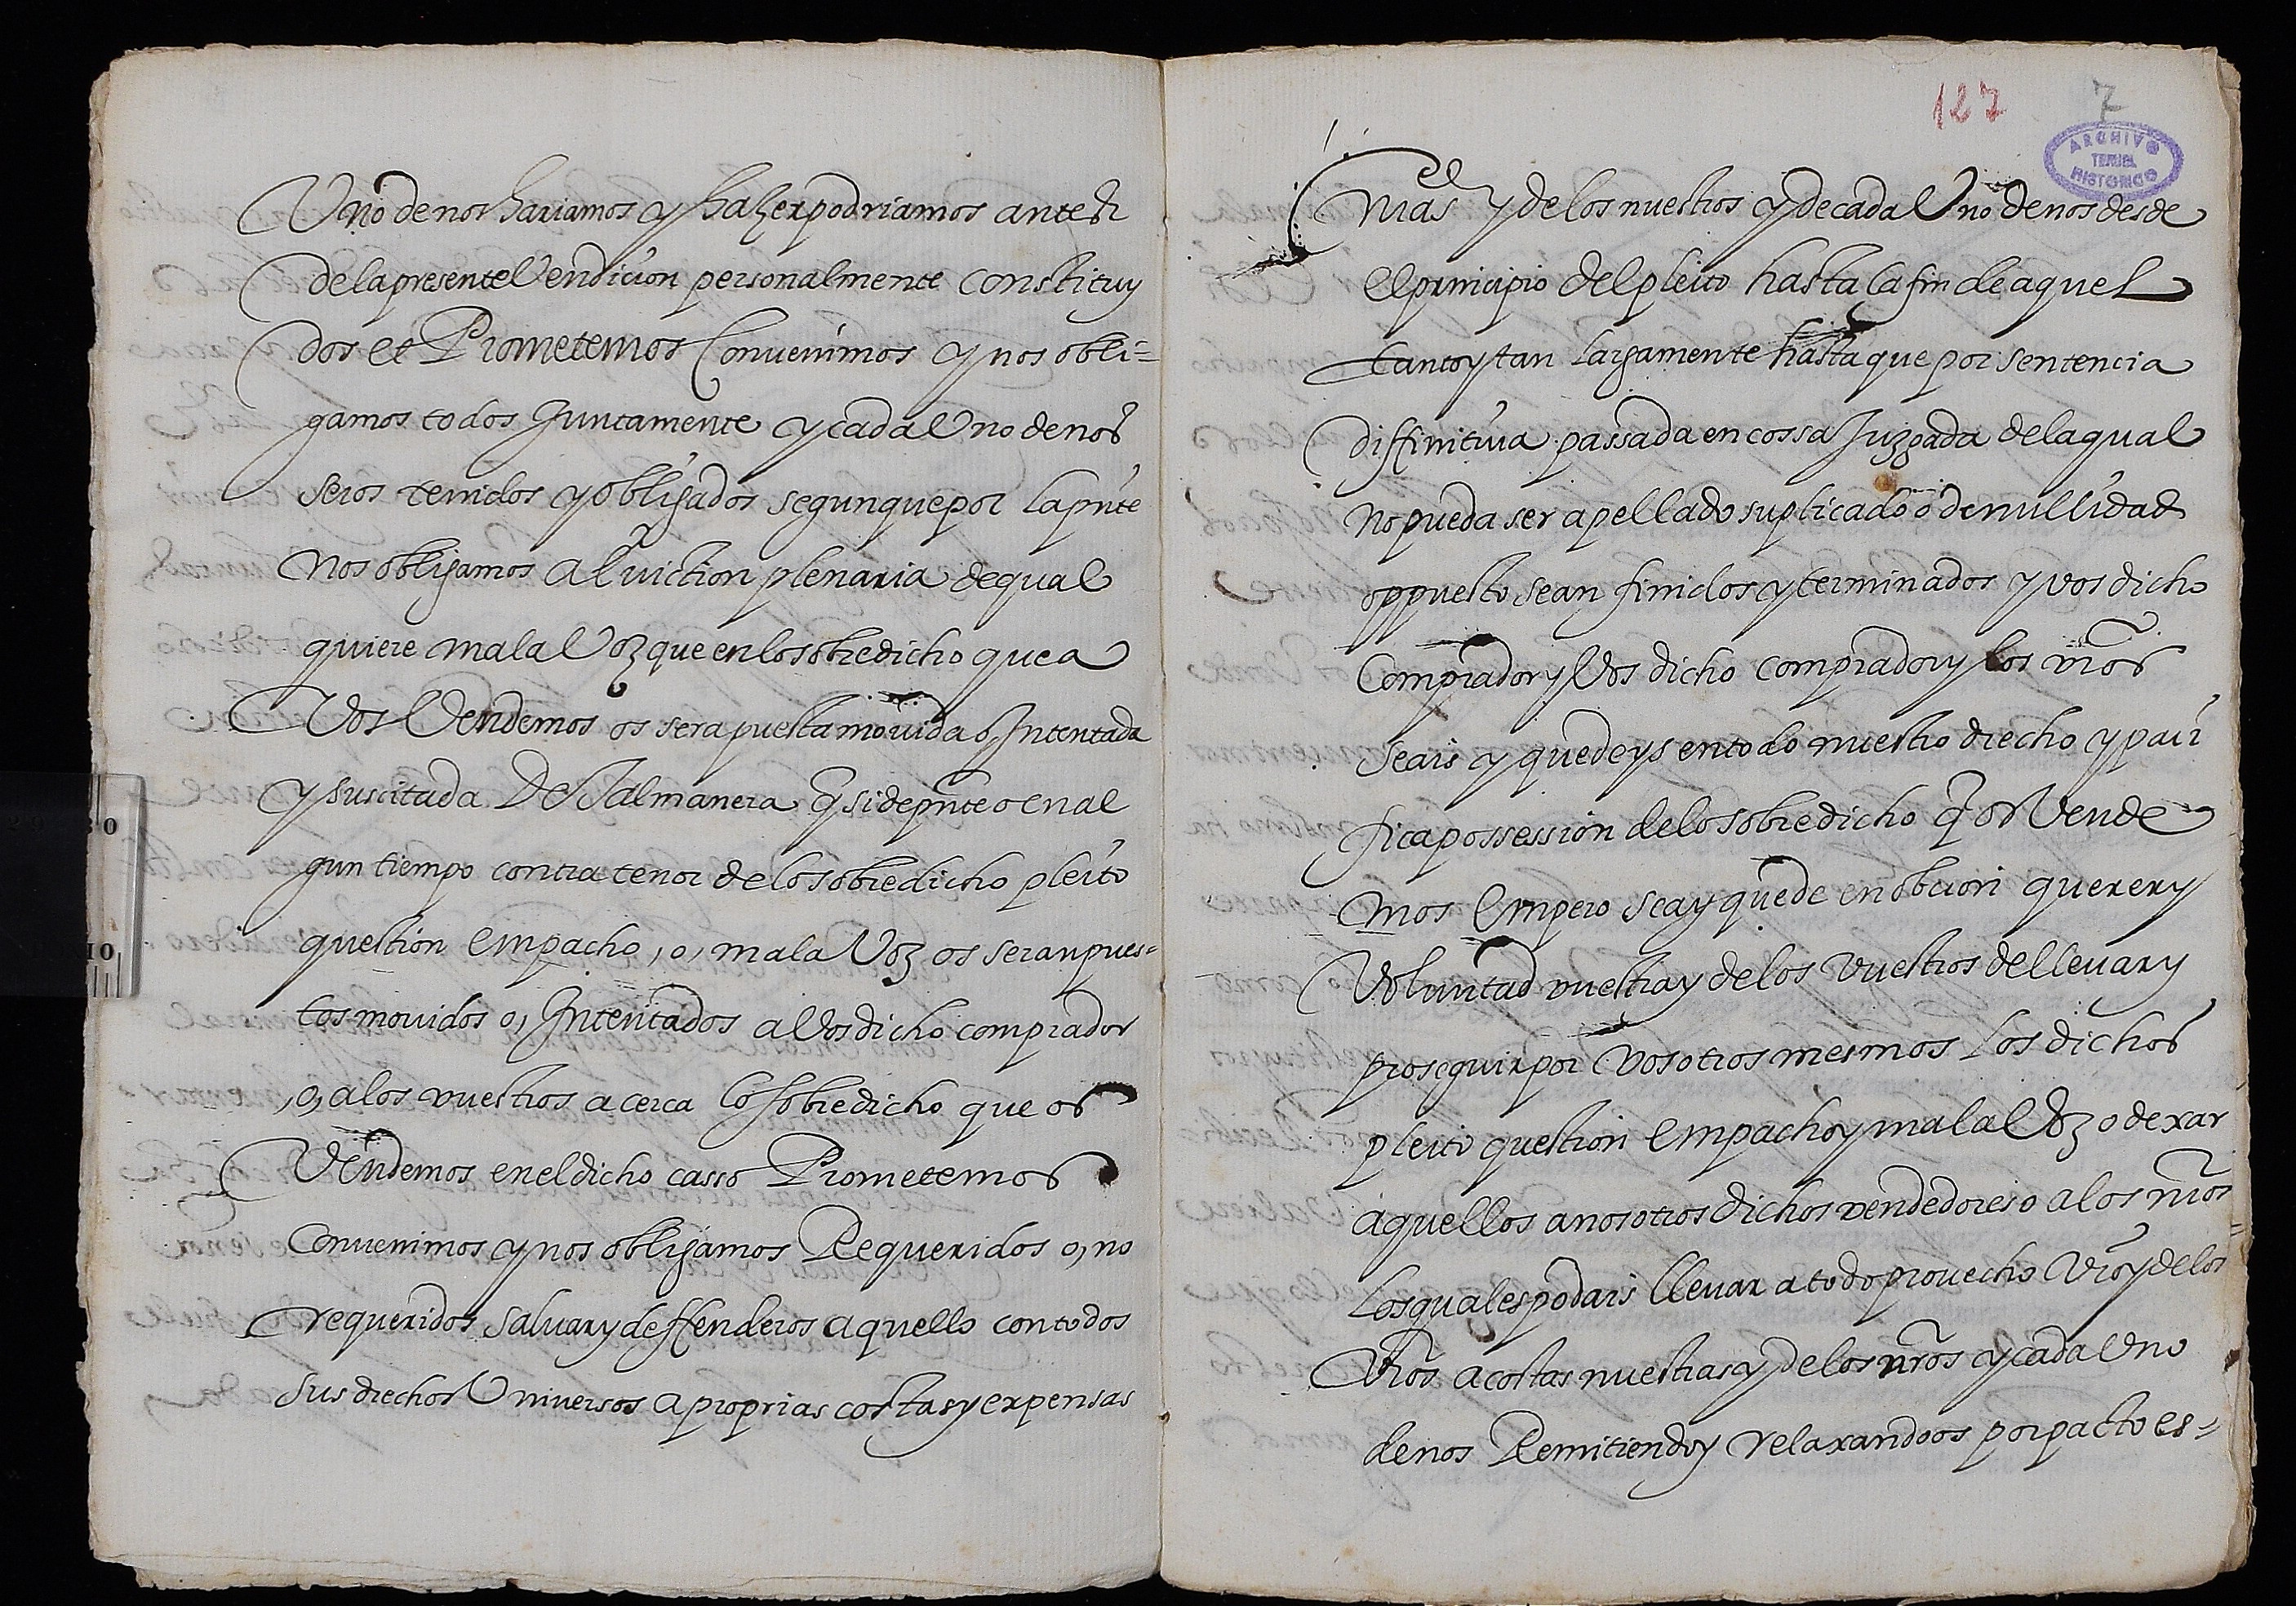 Uno de nos hariamos y hazer podriamos antes
de la presente Vendicion personalmente constituy
dos et Prometemos Convenimos y nos obli=
gamos todos Juntamente y cada Uno de nos
seros tenidos y obligados segun que por la pnte
Nos obligamos a Euiction plenaria de qual
quiere mala Voz que en lo sobredicho que a
Vos Vendemos os sera puesta mouida o Intentada
y suscitada De Tal manera q̃ si de pnte o en al
gun tiempo contra tenor de lo sobredicho pleito
question empacho, o, mala Voz os seran pues=
tos mouidos o, Intentados a Vos dicho comprador
,o, a los vuestros acerca lo sobredicho que os
Vendemos en el dicho casso Prometemos
Convenimos y nos obligamos Requeridos o, no
requeridos saluar y deffenderos aquello con todos
sus drechos Universos a proprias costas y expensas
127 7
ARCHIVO
TERUEL
HISTORICO
nras y de los nuestros y de cada Uno de nos desde
el principio del pleito hasta la fin de aquel
tanto y tan largamente hasta que por sentencia
diffinitiua passada en cossa Juzgada de la qual
no pueda ser apellado suplicado o de nullidad
oppuesto sean finidos y terminados y vos dicho
Comprador y Vos dicho comprador y los vrõs
seais y quedeys en todo nuestro drecho y paci
fica possession de lo sobredicho q̃ os Vende
mos Empero sea y quede en obcion querer y
Voluntad vuestra y de los vuestros de lleuar y
proseguir por vosotros mesmos los dichos
pleito question empacho y mala Voz o dexar
aquellos a nosotros dichos vendedores o a los nrõs
Los quales podais lleuar a todo prouecho vrõ y de los
Vrõs a costas nuestras y de los nrõs y cada Uno
de nos Remitiendo y relaxandoos por pacto es=